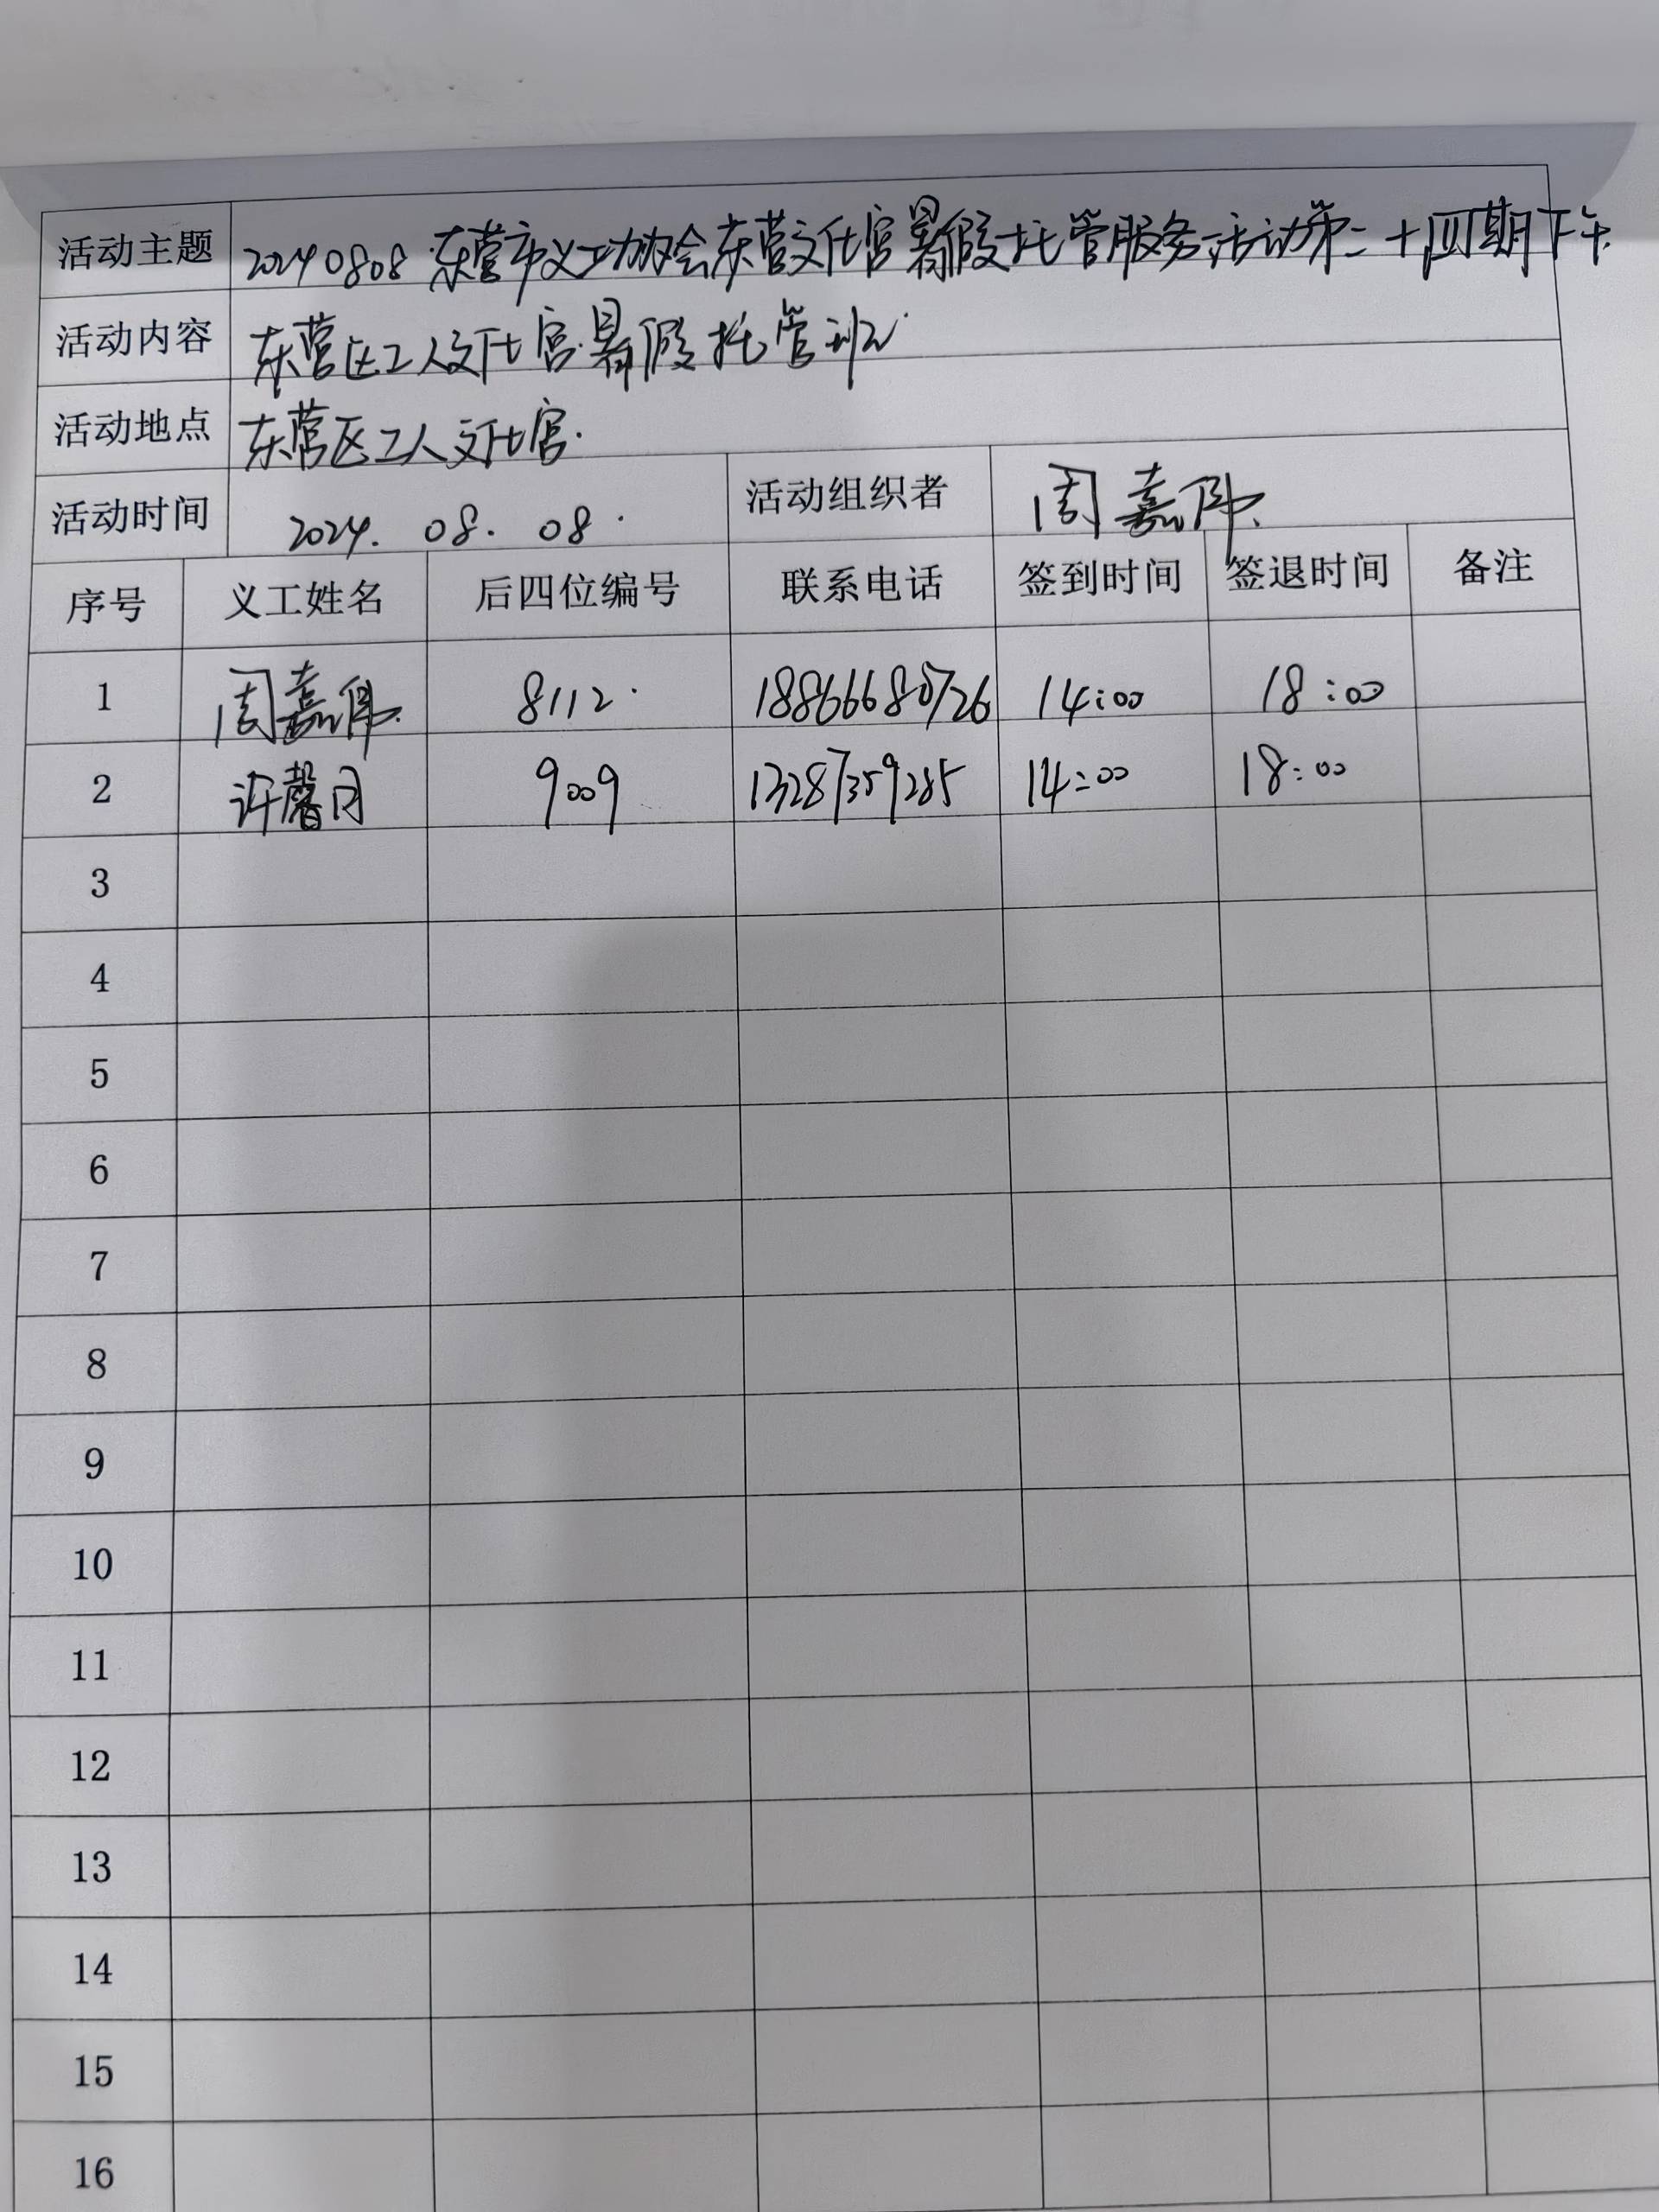 活动主题 20240808 东营市义工协会东营文化宫暑假托管服务活动第二十四期下午.
活动内容 东营区工人文化宫暑假托管班.
活动地点 东营区工人文化宫.
活动时间 2024. 08. 08. 活动组织者 周嘉伟.
序号 义工姓名 后四位编号 联系电话 签到时间 签退时间 备注
1 周嘉伟. 8112. 14:00 18:00
2 许馨月 9009 13287359285 14:00 18:00
3
4
5
6
7
8
9
10
11
12
13
14
15
16